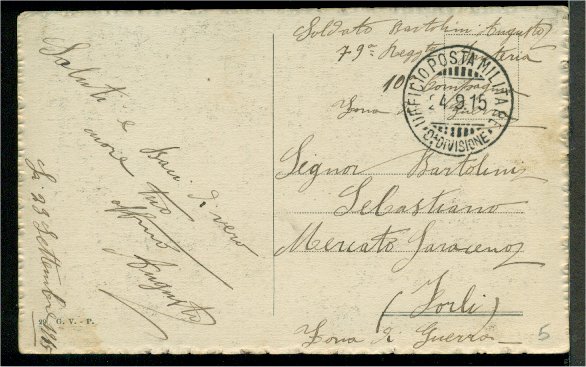 Soldato Bartolini Augusto
79ª Regg.to Fanteria
10ª Compagnia
Zona di Guerra
UFFICIO POSTA MILITARE
24.9.15
DIVISIONE
Signor Bartolini
Sebastiano
Mercato Saraceno
(Forlì)
Zona di Guerra
Saluti e Baci di vero
cuore tuo
affmo Augusto
Li 23 Settembre 1915
G. V. - P.
5